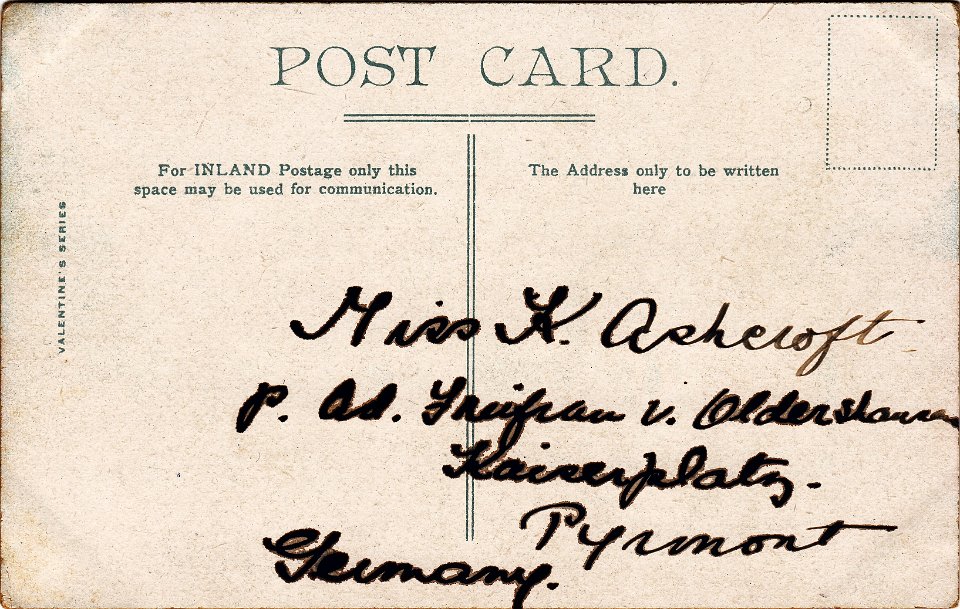 POST CARD.
For INLAND Postage only this
space may be used for communication.
The Address only to be written
here
VALENTINE'S SERIES
Miss K. Ashcroft
p. Ad. v. Oldershausen
Kaiserplatz.
Pyrmont
Germany.